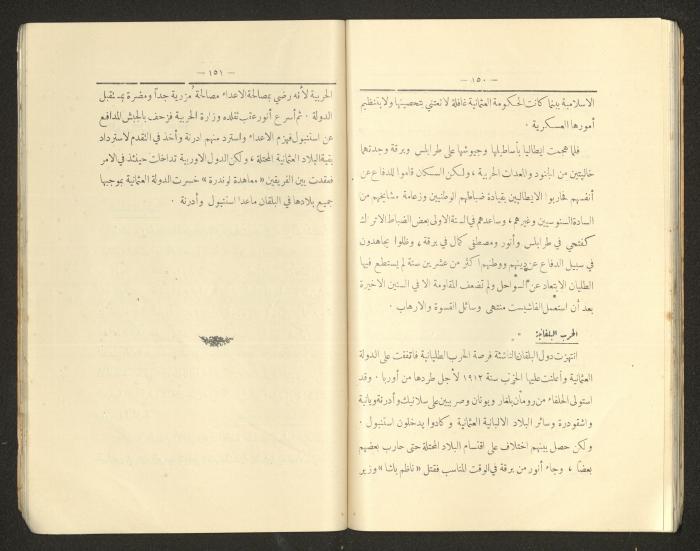 — ١٥٠ —
الاسلامية بينما كانت الحكومة العثمانية غافلة لا تعتني بتحصينها ولا بتنظيم
أمورها العسكرية ·
فلما هجمت ايطاليا بأساطيلها وجيوشها على طرابلس وبرقة وجدتهما
خاليتين من الجنود والعدات الحربية ، ولكن السكان قاموا للدفاع عن
أنفسهم فحاربوا الايطاليين بقيادة ضباطهم الوطنيين وزعامة مشايخهم من
السادة السنوسيين وغيرهم ، وساعدهم في السنة الاولى بعض الضباط الاتراك
كفتحي في طرابلس وأنور ومصطفى كمال في برقة ، وظلوا يجاهدون
في سبيل الدفاع عن دينهم ووطنهم اكثر من عشرين سنة لم يستطع فيها
الطليان الابتعاد عن السواحل ولم تضعف المقاومة الا في السنين الاخيرة
بعد أن استعمل الفاشيست منتهى وسائل القسوة والارهاب ·
الحرب البلقانية:
انتهزت دول البلقان الناشئة فرصة الحرب الطليانية فاتفقت على الدولة
العثمانية وأعلنت عليها الحرب سنة ١٩١٢ لأجل طردها من أوربا · وقد
استولى الحلفاء من رومان وبلغار ويونان وصربيين على سلانيك وأدرنة ويانية
واشقودرة وسائر البلاد الالبانية العثمانية وكادوا يدخلون استنبول ·
ولكن حصل بينهم اختلاف على اقتسام البلاد المحتلة حتى حارب بعضهم
بعضاً ، وجاء أنور من برقة في الوقت المناسب فقتل « ناظم باشا » وزير
— ١٥١ —
الحربية لأنه رضي بمصالحة الاعداء مصالحة مزرية جداً ومضرة بمستقبل
الدولة · ثم أسرع أنور عقب تقلده وزارة الحربية فزحف بالجيش المدافع
عن استنبول فهزم الاعداء واسترد منهم ادرنة وأخذ في التقدم لاسترداد
بقية البلاد العثمانية المحتلة ، ولكن الدول الاوربية تداخلت حينئذ في الامر
فعقدت بين الفريقين « معاهدة لوندرة » خسرت الدولة العثمانية بموجبها
جميع بلادها في البلقان ماعدا استنبول وأدرنة ·